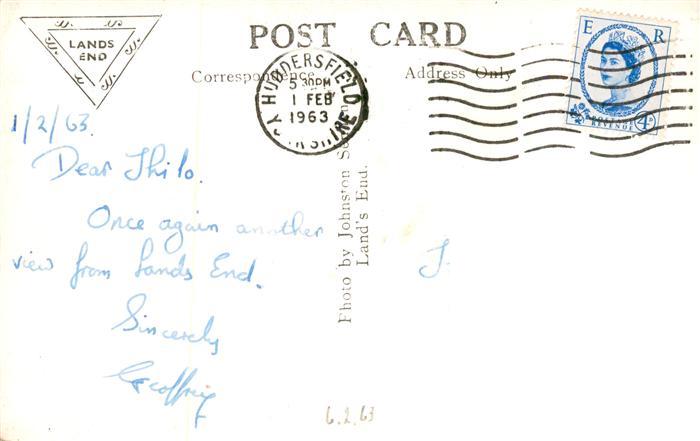 LANDS
END
POST CARD
Correspondence
Address Only
HUDDERSFIELD
5 30PM
1 FEB
1963
YORKSHIRE
E R
POSTAGE
REVENUE
4D
1/2/63.
Dear Thilo.
Once again another
view from Lands End.
Sincerely
Geoffrey
Photo by Johnston
Land's End.
T.
6.2.63